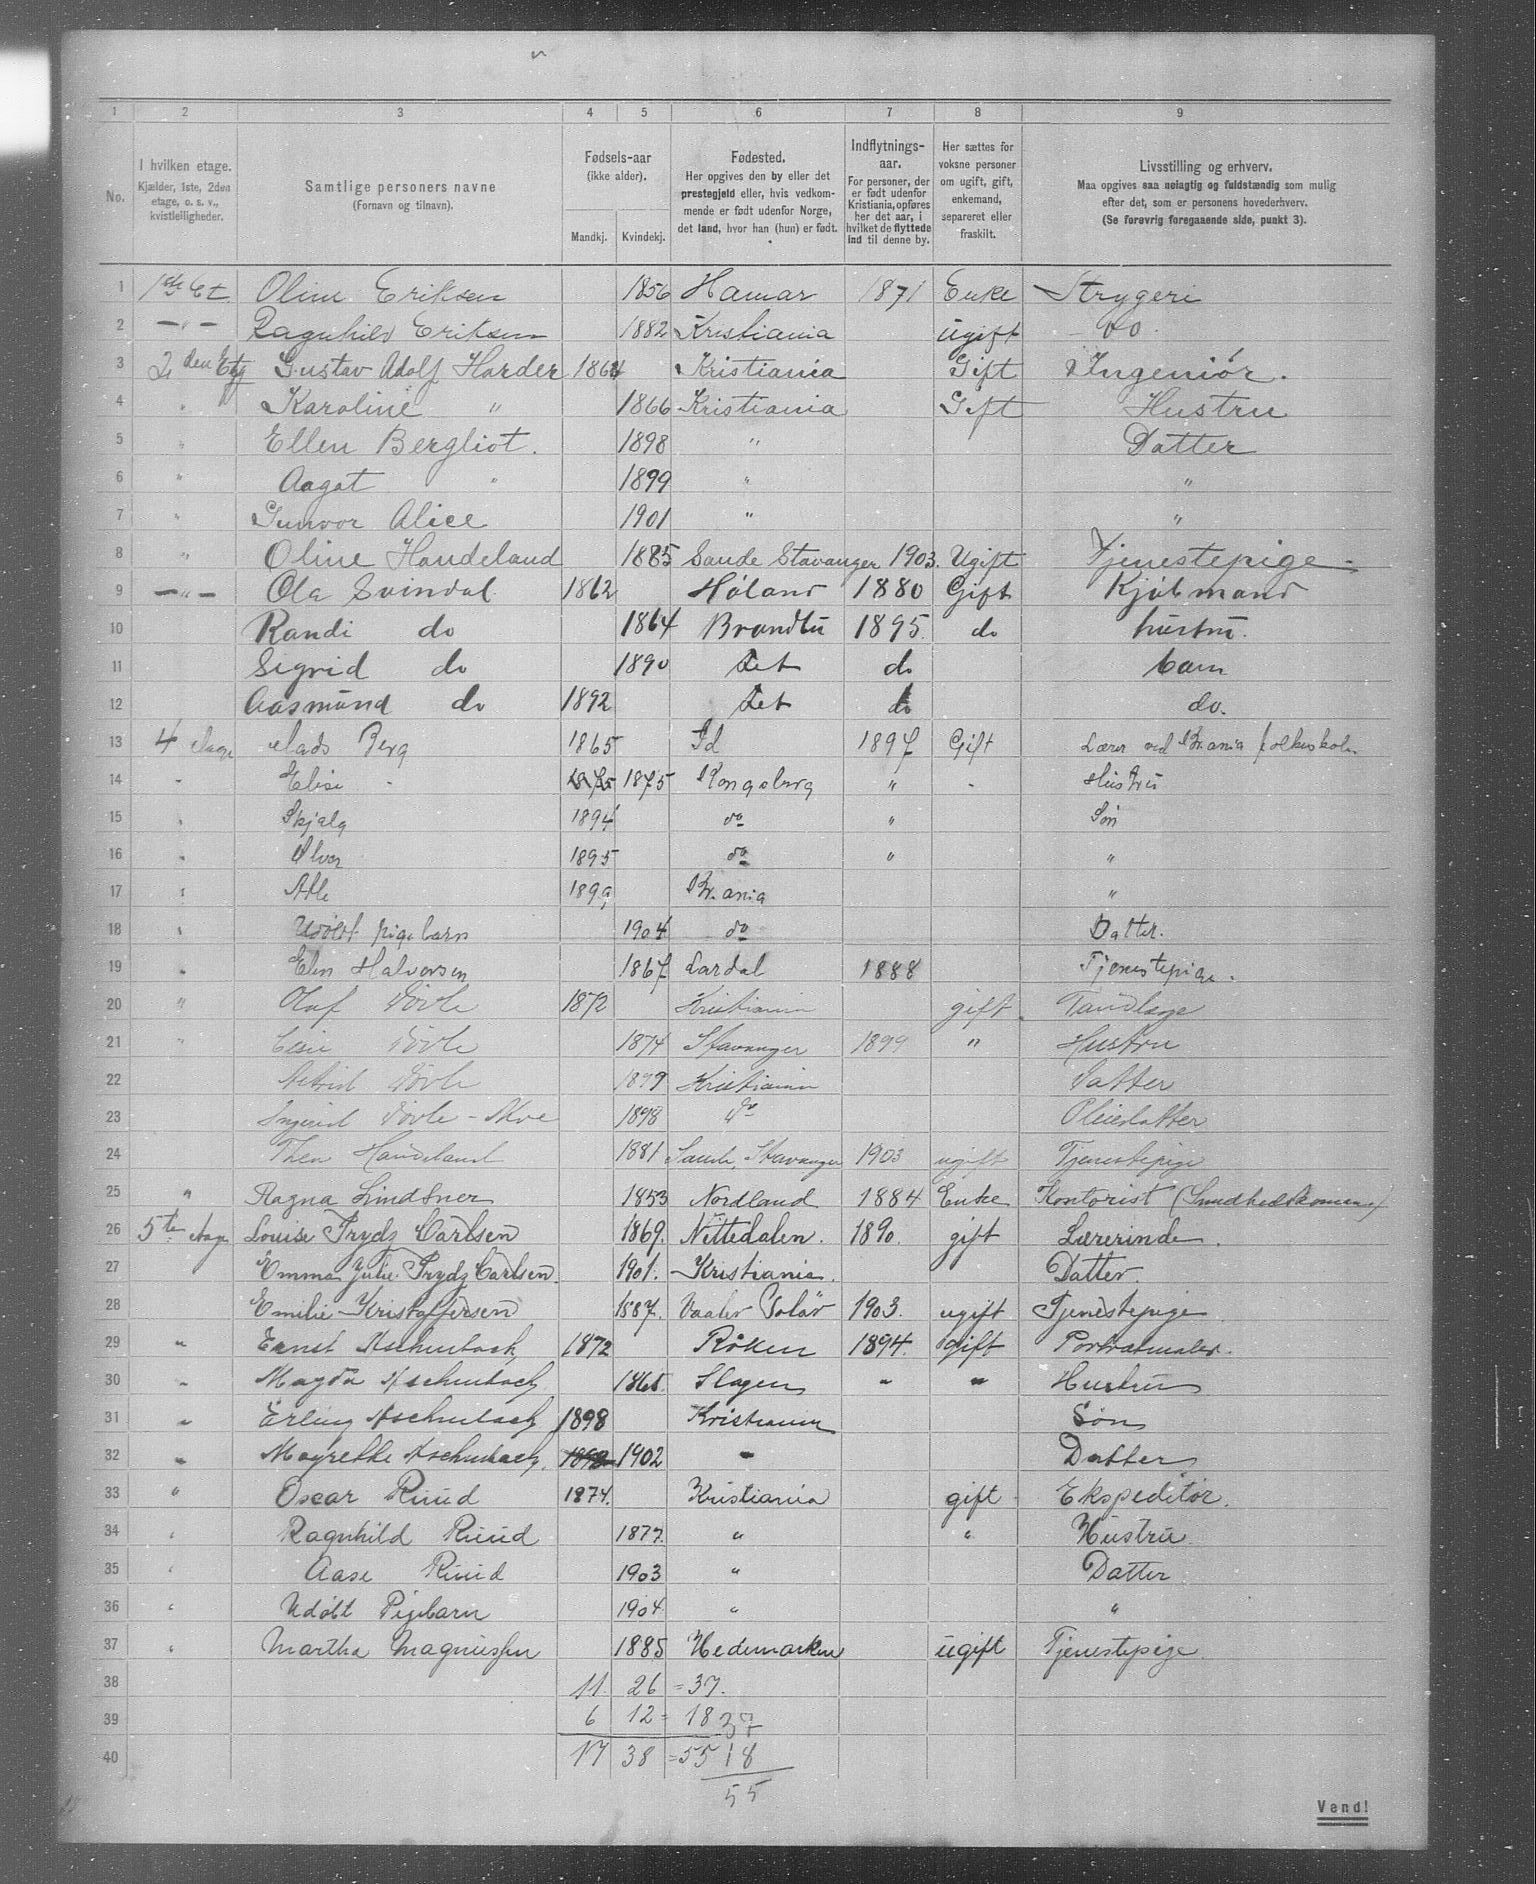 1 2 3 4 5 6 7 8 9
No.
I hvilken etage.
Kjælder, 1ste, 2den
etage, o. s. v.,
kvistleiligheder.
Samtlige personers navne
(Fornavn og tilnavn).
Fødsels-aar
(ikke alder).
Mandkj. Kvindekj.
Fødested.
Her opgives den by eller det
prestegjeld eller, hvis vedkom-
mende er født udenfor Norge,
det land, hvor han (hun) er født.
Indflytnings-
aar.
For personer, der
er født udenfor
Kristiania, opføres
her det aar, i
hvilket de flyttede
ind til denne by.
Her sættes for
voksne personer
om ugift, gift,
enkemand,
separeret eller
fraskilt.
Livsstilling og erhverv.
Maa opgives saa nøiagtig og fuldstændig som mulig
efter det, som er personens hovederhverv.
(Se forøvrig foregaaende side, punkt 3).
1 1ste Et. Oline Eriksen 1856 Hamar 1871 Enke Strygeri
2 — " — Ragnhild Eriksen 1882 Kristiania ugift do.
3 2den Etg Gustav Adolf Harder 1864 Kristiania Gift Ingeniör.
4 " Karoline " 1866 Kristiania Gift Hustru
5 " Ellen Bergliot. 1898 " Datter
6 " Aagot " 1899 " "
7 " Gunvor Alice 1901 " "
8 " Oline Handeland 1885 Sande Stavanger 1903. Ugift Tjenestepige
9 — " — Ola Svindal 1862 Høland 1880 Gift Kjøbmand
10 Randi do 1864 Brandbu 1895. do hustru.
11 Sigrid do 1890 det do barn
12 Aasmund do 1892 det do do.
13 4 Etage Mads Berg 1865 Id 1897 Gift Lærer ved Kr.ania folkeskole
14 - Elise - 1875 1875 Kongsberg " - Hustru
15 " Skjalg 1894 do " Søn
16 " Olver 1895 do " "
17 " Atle 1899 Kr.ania "
18 " Udöbt pigebarn 1904 do Datter.
19 " Elen Halvorsen 1867 Lardal 1888 Tjenestepige.
20 " Olaf Dövle 1872 Kristiania gift Tandlæge
21 " Elise Dövle 1874 Stavanger 1899 " Hustru
22 Astrid Dövle 1899 Kristiania Datter
23 Ingrid Dövle - Moe 1898 do Pleiedatter
24 Thea Handeland 1881 Sande, Stavanger 1903 ugift Tjenestepige
25 " Ragna Lindsner 1853 Nordland 1884 Enke Kontorist (Sundhedskomm.)
26 5te Etage Louise Prydz Carlsen 1869. Nittedalen. 1890. gift Lærerinde.
27 Emma Julie Prydz Carlsen. 1901. Kristiania. Datter.
28 Emilie Kristoffersen 1887. Vaaler Solör 1903. ugift Tjenestepige
29 " Ernst Aschenbach, 1872 Röken 1894. gift Portrætmaler.
30 " Magda Aschenbach, Slagen " " Hustru
31 " Erling Aschenbach, 1898 Kristiania Søn
32 " Aschenbach, 1902 " Datter
33 " Oscar Ruud 1874. Kristiania gift Ekspeditör.
34 " Ragnhild Ruud 1877. " " Hustru.
35 " Aase Ruud 1903 " Datter
36 " Udøbt Pigebarn 1904 " "
37 " Martha Magnussen 1885 Hedemarken ugift Tjenestepige.
38 11. 26 = 37.
39 6 12 = 18 37
40 17 38 = 55 18
55
Vend!